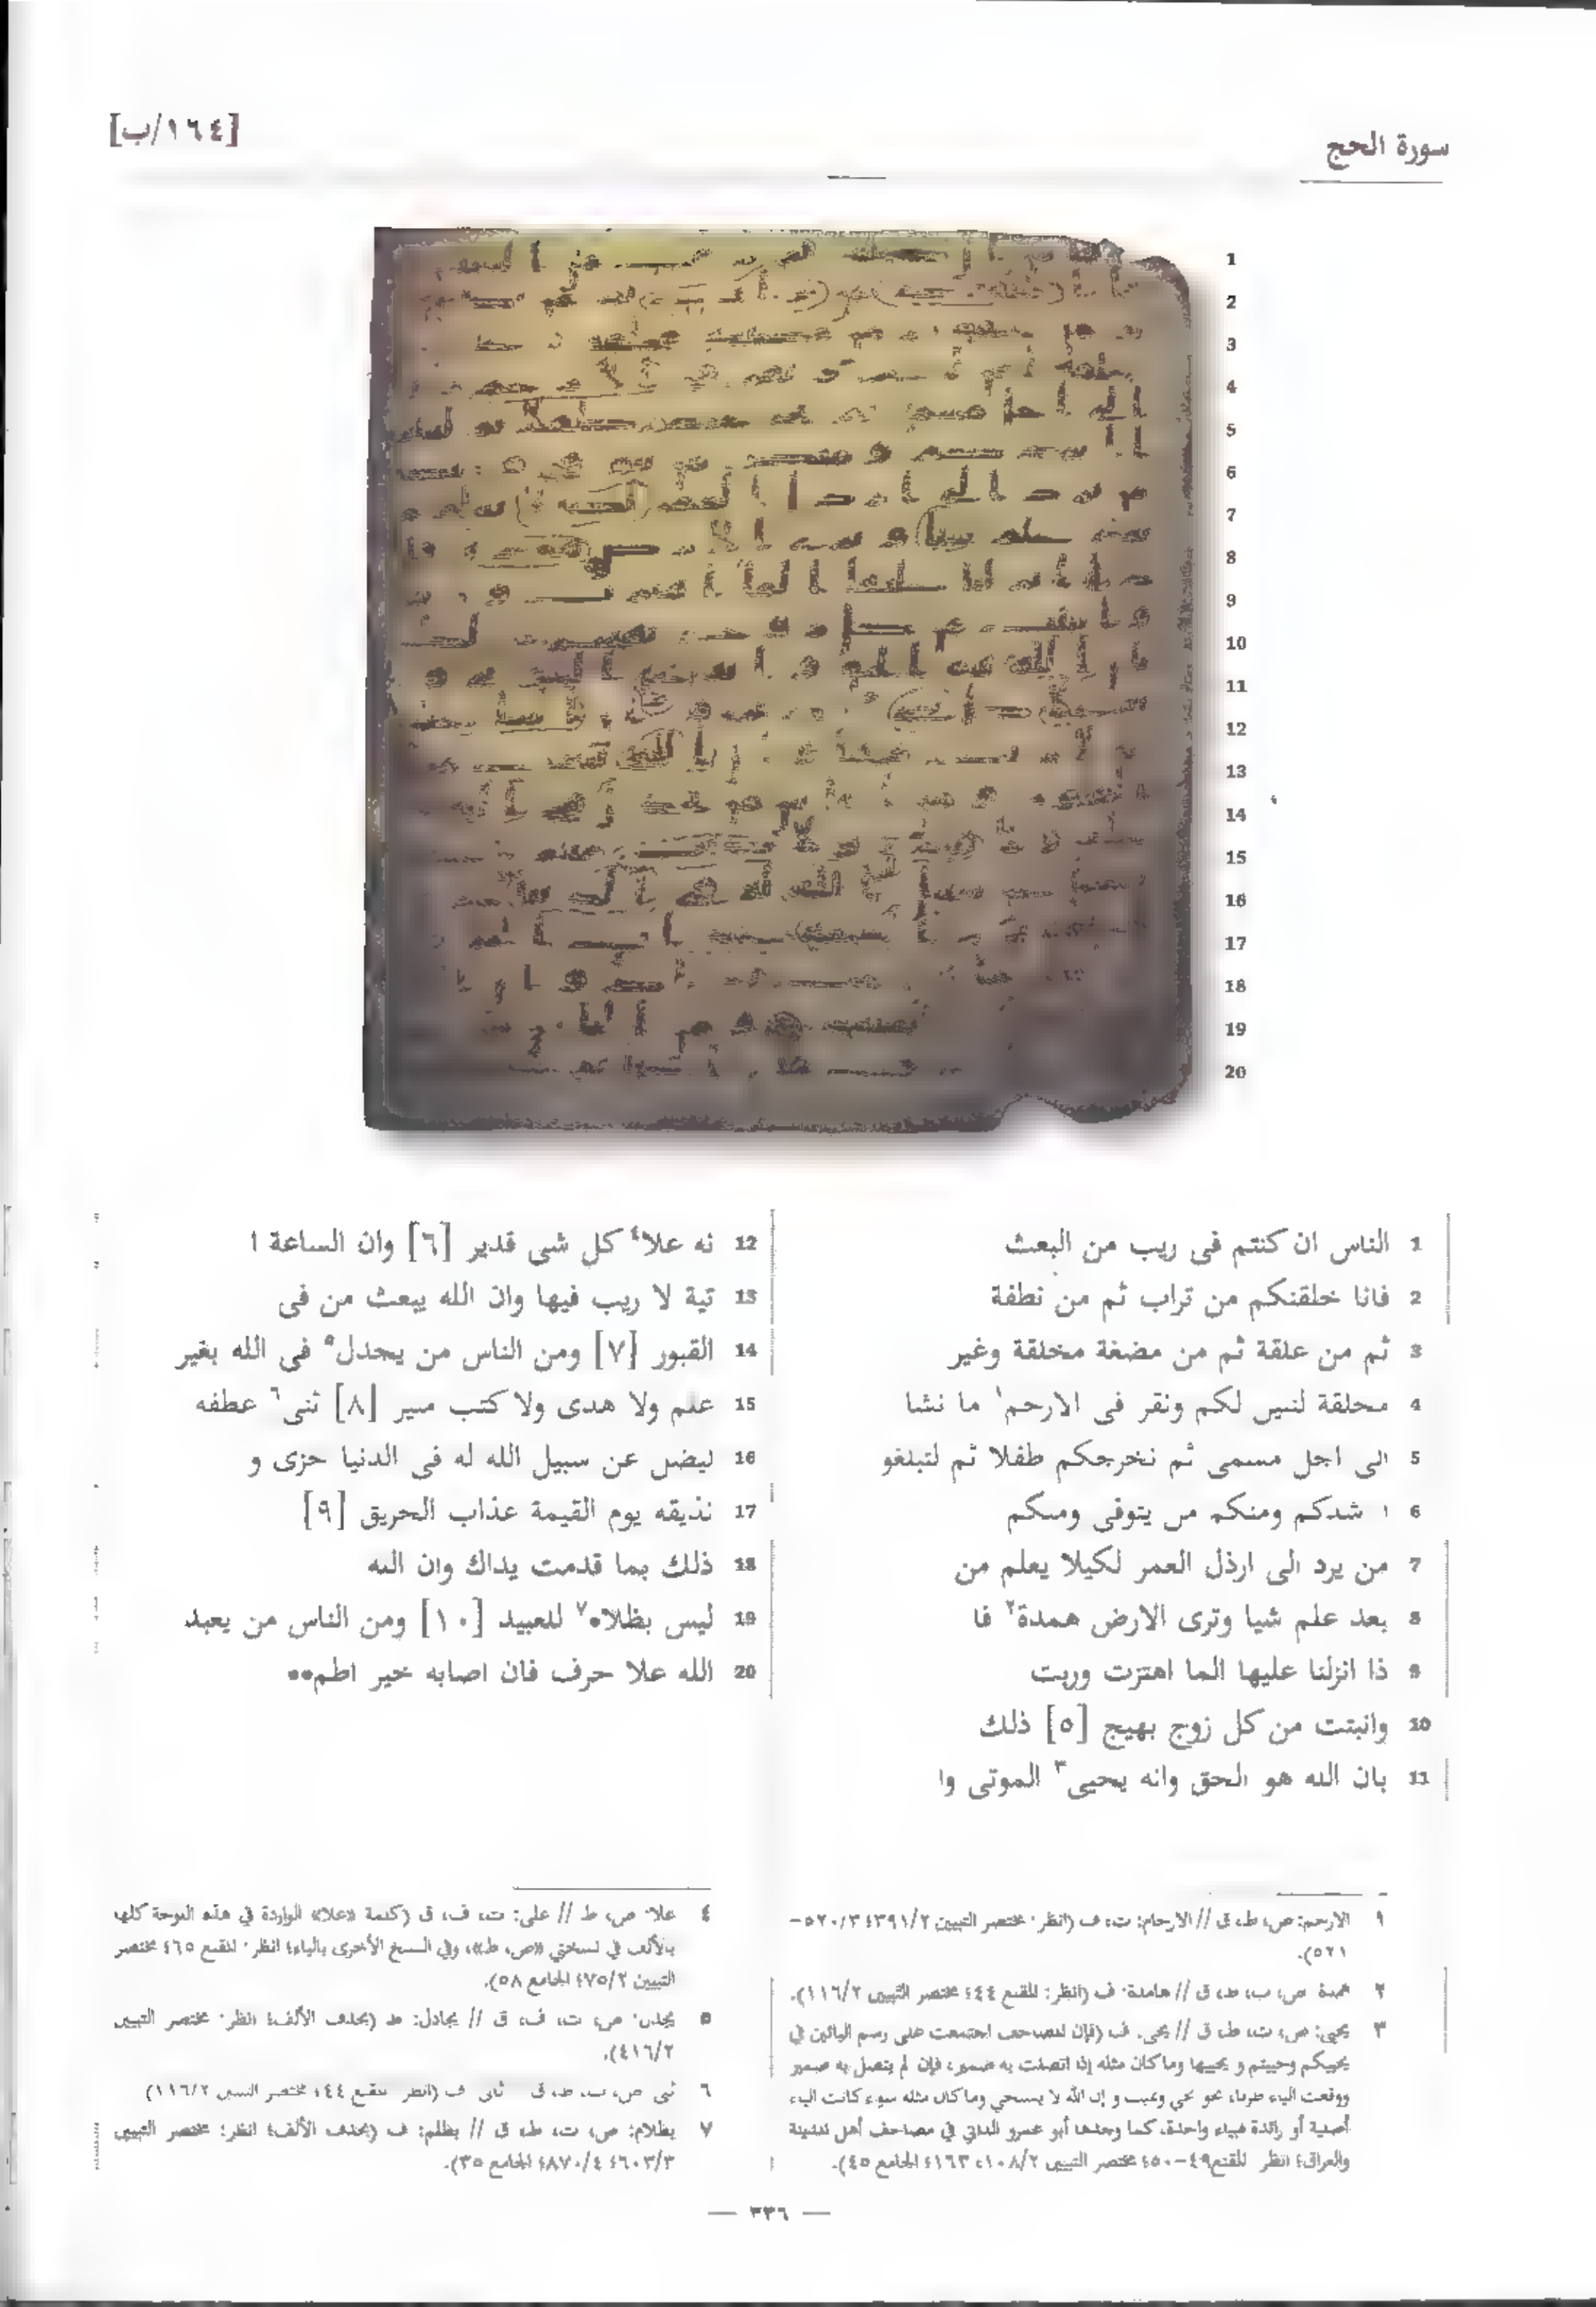 سورة الحج
[١٦٤/ب]
1 الناس ان كنتم فى ريب من البعث
2 فانا خلقنكم من تراب ثم من نطفة
3 ثم من علقة ثم من مضغة مخلقة وغير
4 محلقة لنبين لكم ونقر فى الارحم١ ما نشا
5 الى اجل مسمى ثم نخرجكم طفلا ثم لتبلغو
6 ا شدكم ومنكم من يتوفى ومنكم
7 من يرد الى ارذل العمر لكيلا يعلم من
8 بعد علم شيا وترى الارض همدة٢ فا
9 ذا انزلنا عليها الما اهتزت وربت
10 وانبتت من كل زوج بهيج [٥] ذلك
11 بان الله هو الحق وانه يحيى٣ الموتى وا
12 نه علا٤ كل شى قدير [٦] وان الساعة ا
13 تية لا ريب فيها وان الله يبعث من فى
14 القبور [٧] ومن الناس من يجدل٥ فى الله بغير
15 علم ولا هدى ولا كتب منير [٨] ثنى٦ عطفه
16 ليضل عن سبيل الله له فى الدنيا خزى و
17 نذيقه يوم القيمة عذاب الحريق [٩]
18 ذلك بما قدمت يداك وان الله
19 ليس بظلام٧ للعبيد [١٠] ومن الناس من يعبد
20 الله علا حرف فان اصابه خير اطم••
١ الارحم: ص، ط، ق // الارحام: ت، ف (انظر: مختصر التبيين ٣٩١/٢؛ ٥٢٠/٣-
٥٢١).
٢ همدة: ص، ب، ط، ق // هامدة: ف (انظر: المقنع ٤٤؛ مختصر التبيين ١١٦/٢).
٣ يحيى: ص، ت، ط، ق // يحى: ف (فإن المصاحف اجتمعت على رسم اليائين في
يحييكم وحييتم و يحييها وما كان مثله إذا اتصلت به ضمير، فإن لم يتصل به ضمير
ووقعت الياء طرفا، نحو نحي ونميت و إن الله لا يستحي وما كان مثله سواء كانت الياء
أصلية أو زائدة فبياء واحدة، كما وجدها أبو عمرو الداني في مصاحف أهل المدينة
والعراق؛ انظر: المقنع ٤٩-٥٠؛ مختصر التبيين ١٠٨/٢، ١٦٣؛ الجامع ٤٥).
٤ علا: ص، ط // على: ت، ف، ق (كلمة «علا» الواردة في هذه اللوحة كلها
بالألف في نسختي «ص، ط»، وفي النسخ الأخرى بالياء؛ انظر: المقنع ٦٥؛ مختصر
التبيين ٧٥/٢؛ الجامع ٥٨).
٥ يجدل: ص، ت، ف، ق // يجادل: ط (بحذف الألف؛ انظر: مختصر التبيين
٤١٦/٢).
٦ ثنى: ص، ب، ط، ق ثانى: ف (انظر: المقنع ٤٤؛ مختصر التبيين ١١٦/٢)
٧ بظلام: ص، ت، ط، ق // بظلم: ف (بحذف الألف؛ انظر: مختصر التبيين
٦٠٣/٣؛ ٨٧٠/٤؛ الجامع ٣٥).
— ٣٣٦ —